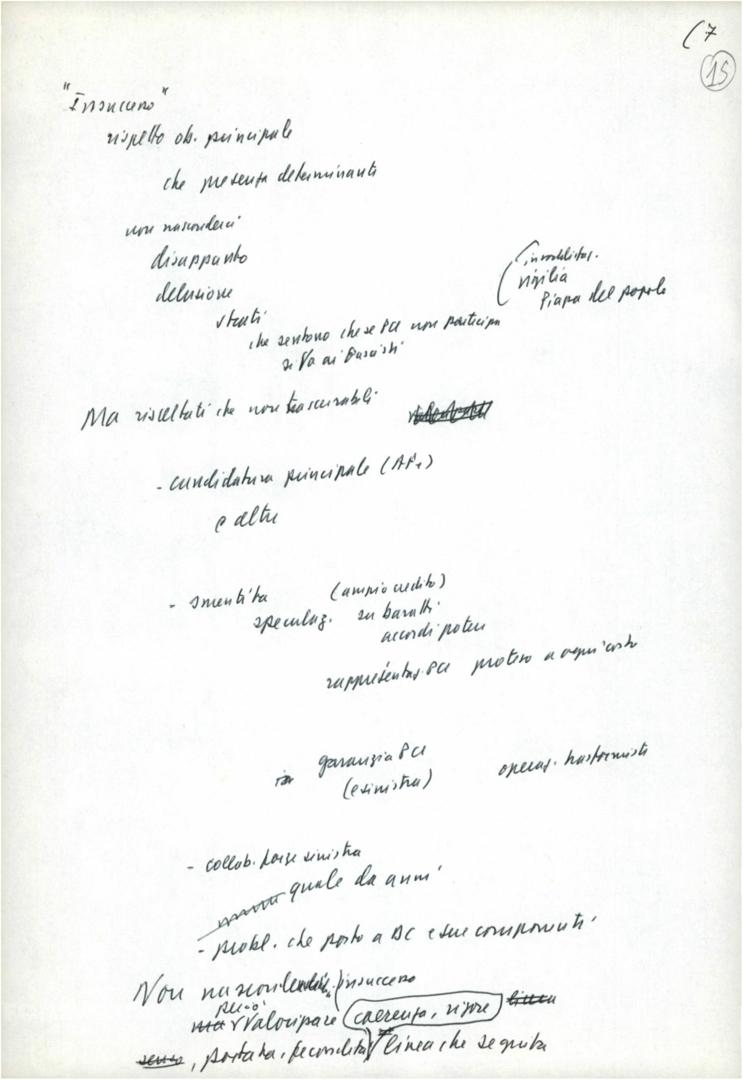 (7
15
"Insuccesso"
rispetto ob. principale
che presenza determinante
non nasconderci
disappunto
delusione
strati
(invalidità.
vigilia
Piazza del popolo
che sentono che se PCI non partecipa
si va ai fascisti
Ma risultati che non trascurabili
- candidatura principale (AF.)
e altre
- smentita (ampio credito)
speculaz. su baratti
accordi potere
rappresentaz. PCI proteso a ogni costo
in garanzia PCI
(e sinistra) operaz. trasformiste
- collab. forze sinistra
quale da anni
- probl. che posto a DC e sue componenti
Non nascondere insuccesso
ma però valorizzare coerenza, rigore linea
senso, portata, fecondità linea che seguita